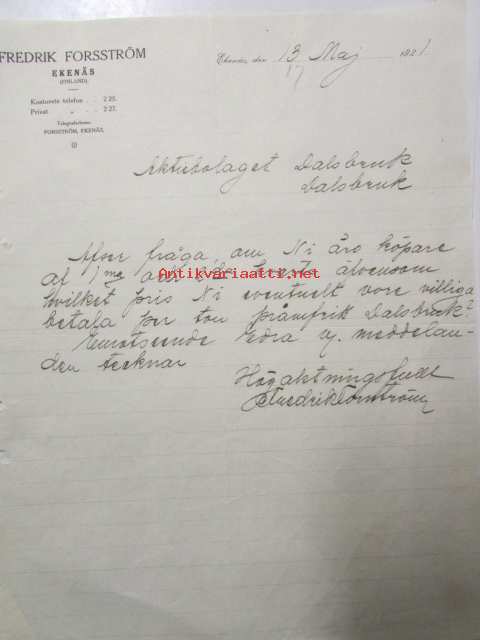 FREDRIK FORSSTRÖM
EKENÄS
(FINLAND)
Kontorets telefon . . 2 25.
Privat „ . . 2 27.
Telegrafadress:
FORSSTRÖM, EKENÄS.
Ekenäs, den 13 Maj 1921
17
Aktiebolaget Dalsbruk
Dalsbruk
fråga, om Ni äro köpare
af 1 ma
hvilket pris Ni eventuelt vore villiga
betala per ton pråmfrik Dalsbruk?
Emotseende Edra v. meddelan-
den tecknar
Högaktningsfullt
Fredrik Forsström
Antikvariaatti.net